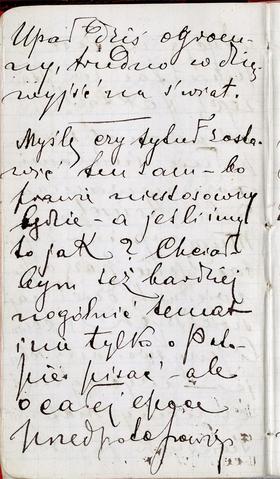 Upał dziś ogrom-
ny, trudno w dzień
wyjść na świat.
Myślę czy tytuł zosta-
wić ten sam – bo
prawie niestosowny
będzie – a jeśli inny
to jak? Chciał-
bym też bardziej
uogólnić temat
i nie tylko o Poto-
pie pisać – ale
o całej epoce
przedpotopowej.